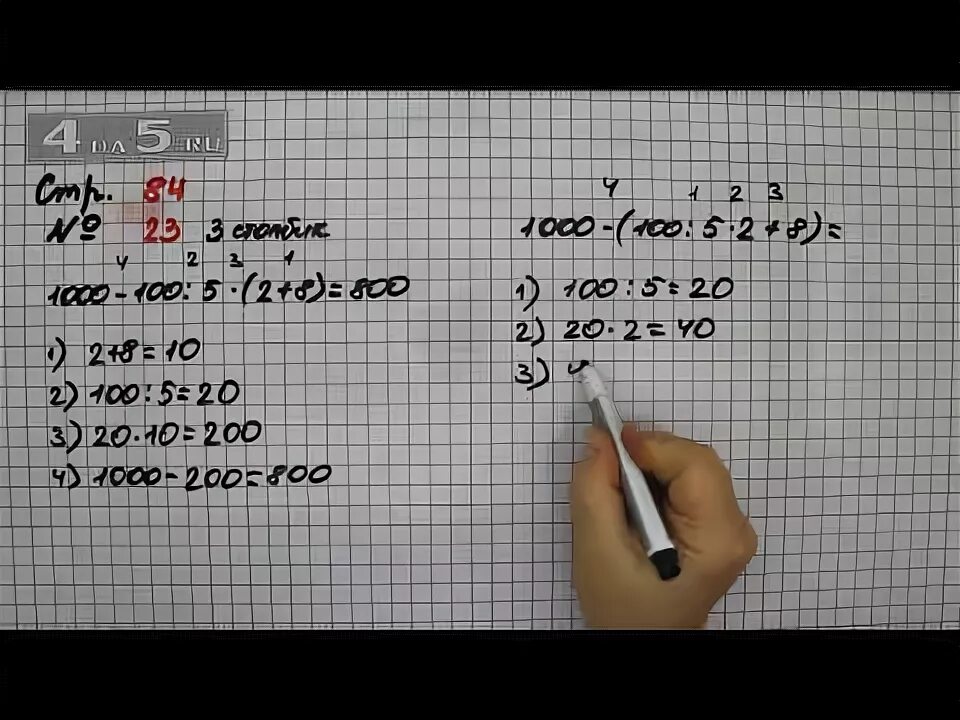 4 DA 5 RU
Стр. 84
№ 23 3 столбик
4 2 3 1
1000 - 100 : 5 · (2 + 8) = 800
1) 2 + 8 = 10
2) 100 : 5 = 20
3) 20 · 10 = 200
4) 1000 - 200 = 800
4 1 2 3
1000 - (100 : 5 · 2 + 8) =
1) 100 : 5 = 20
2) 20 · 2 = 40
3)